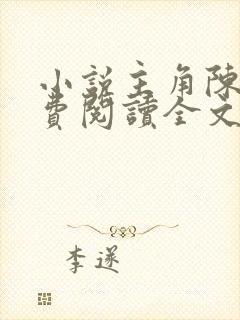 小說主角陳
費閱讀全文
李遂